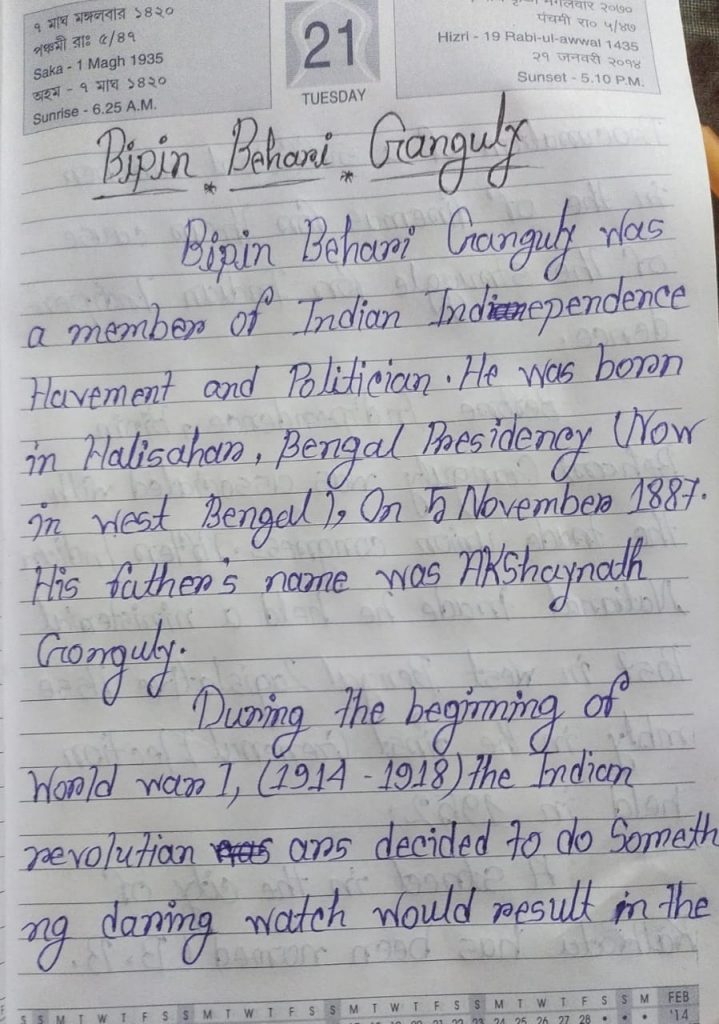 ৭ মাঘ মঙ্গলবার ১৪২০
পঞ্চমী রাঃ ৫/৪৭
Saka - 1 Magh 1935
অহম - ৭ মাঘ ১৪২০
Sunrise - 6.25 A.M.
21
TUESDAY
मंगलवार २०७०
पंचमी रा० ५/४७
Hizri - 19 Rabi-ul-awwal 1435
२१ जनवरी २०१४
Sunset - 5.10 P.M.
Bipin Behari Ganguly
Bipin Behari Ganguly was
a member of Indian Independence
Havement and Politician. He was born
in Halisahar, Bengal Presidency (Now
in west Bengal), On 5 November 1887.
His father's name was AKshaynath
Gonguly.
During the beginning of
World war I, (1914 - 1918) the Indian
revolution ars decided to do Someth
ng daring watch would result in the
S S M T W T F S S M T W T F S S M T W T F S S M T W T F S S M FEB
21 22 23 24 25 26 27 28 • • • '14